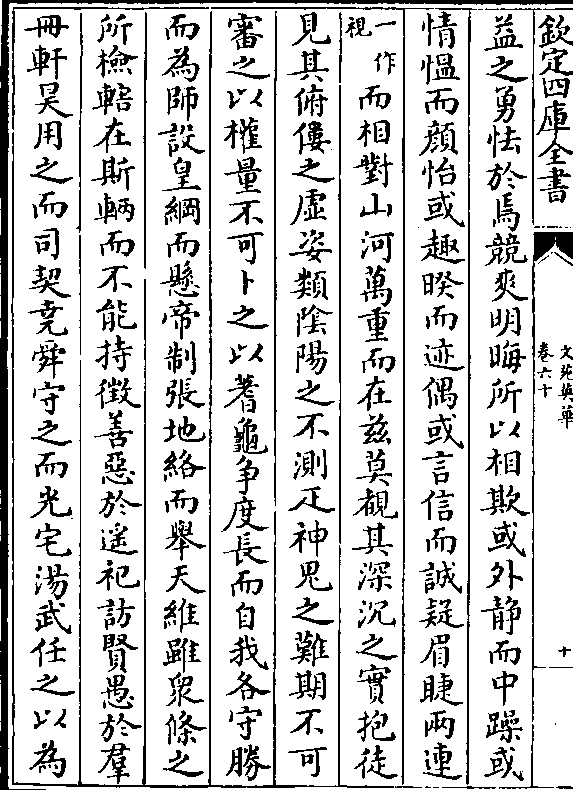 欽定四庫全書
文苑英華
卷六十
十
益之勇怯於焉競爽明晦所以相欺或外静而中躁或
情愠而顔怡或趣暌而迹偶或言信而誠疑眉睫兩連
一作視而相對山河萬重而在兹莫覩其深沉之實抱徒
見其俯僂之虚姿類陰陽之不測疋神鬼之難期不可
審之以權量不可卜之以蓍龜争度長而自我各守勝
而為師設皇綱而懸帝制張地絡而舉天維雖衆條之
所檢轄在斯輛而不能持徴善惡於遥祀訪賢愚於羣
冊軒昊用之而司契堯舜守之而光宅湯武任之以為